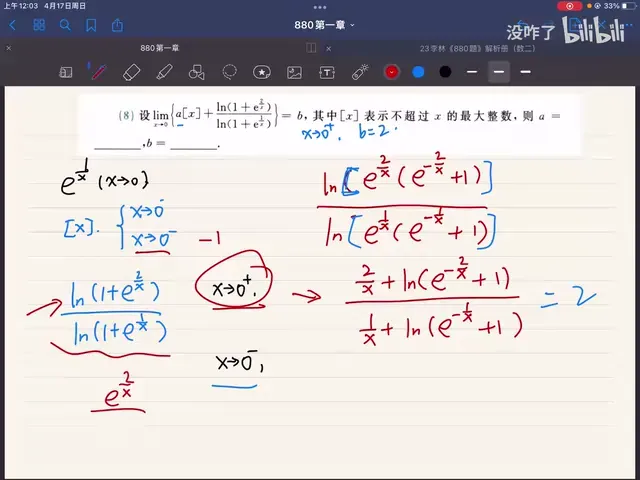 上午 12:03 4月17日周日
33%
880第一章
没咋了 bilibili
880第一章
23李林《880题》解析册（数二）
(8) 设 lim x→0 {a[x] + ln(1+e^(2/x)) / ln(1+e^(1/x))} = b, 其中[x] 表示不超过 x 的最大整数, 则 a =
x→0⁺, b=2.
______, b = ______.
e^(1/x) (x→0)
ln[e^(2/x)(e^(-2/x)+1)] / ln[e^(1/x)(e^(-1/x)+1)]
[x]. { x→0⁻
x→0⁻ -1
ln(1+e^(2/x)) / ln(1+e^(1/x))
x→0⁺, → (2/x + ln(e^(-2/x)+1)) / (1/x + ln(e^(-1/x)+1)) = 2
x→0⁻,
e^(2/x)